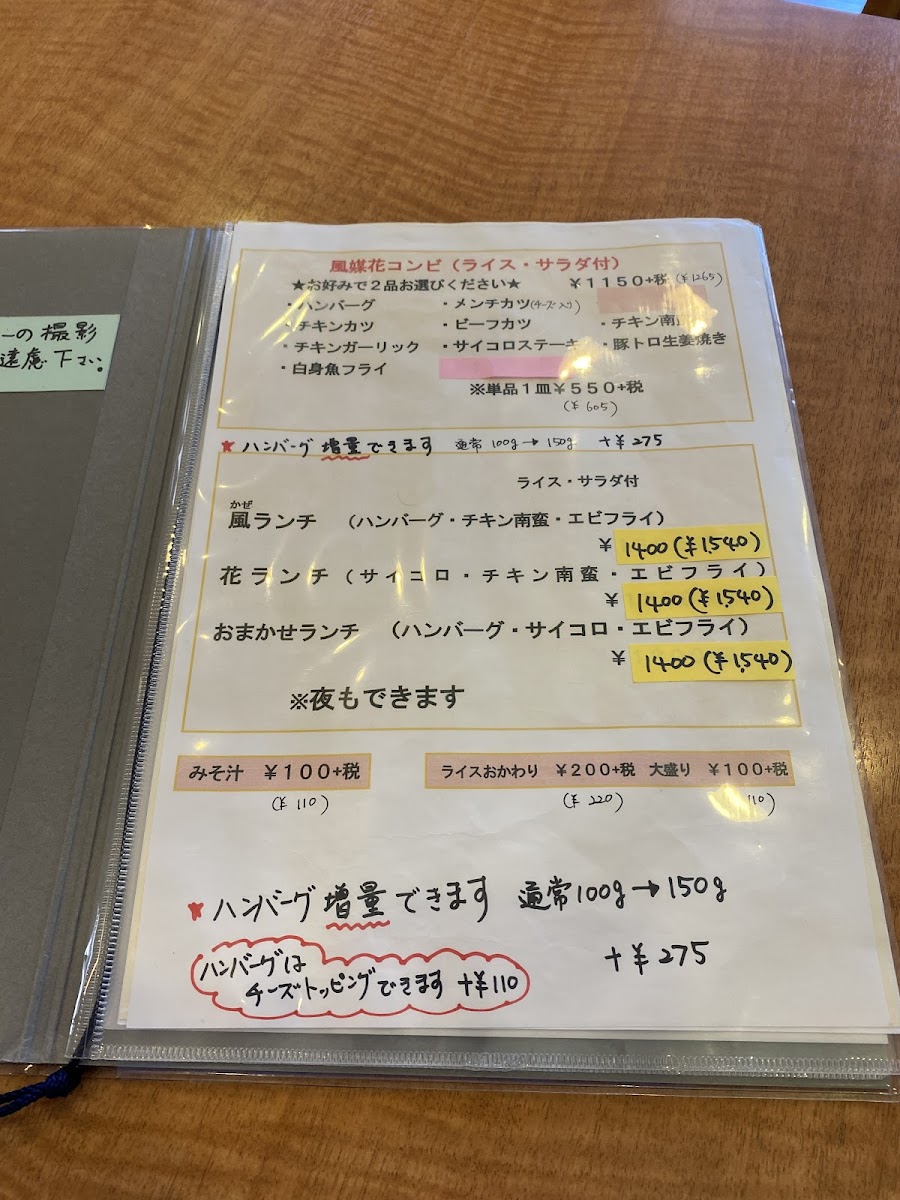 ーの撮影
遠慮下さい。
風媒花コンビ(ライス・サラダ付)
★お好みで2品お選びください★ ¥1150+税(¥1265)
・ハンバーグ ・メンチカツ(チーズ入り)
・チキンカツ ・ビーフカツ ・チキン南
・チキンガーリック ・サイコロステーキ ・豚トロ生姜焼き
・白身魚フライ
※単品1皿¥550+税
(¥605)
★ハンバーグ増量できます 通常100g→150g +¥275
ライス・サラダ付
かぜ
風ランチ (ハンバーグ・チキン南蛮・エビフライ)
¥1400(¥1,540)
花ランチ(サイコロ・チキン南蛮・エビフライ)
¥1400(¥1,540)
おまかせランチ (ハンバーグ・サイコロ・エビフライ)
¥1400(¥1,540)
※夜もできます
みそ汁 ¥100+税 ライスおかわり ¥200+税 大盛り ¥100+税
(¥110) (¥220) 10)
★ハンバーグ増量できます 通常100g→150g
+¥275
ハンバーグは
チーズトッピングできます +¥110